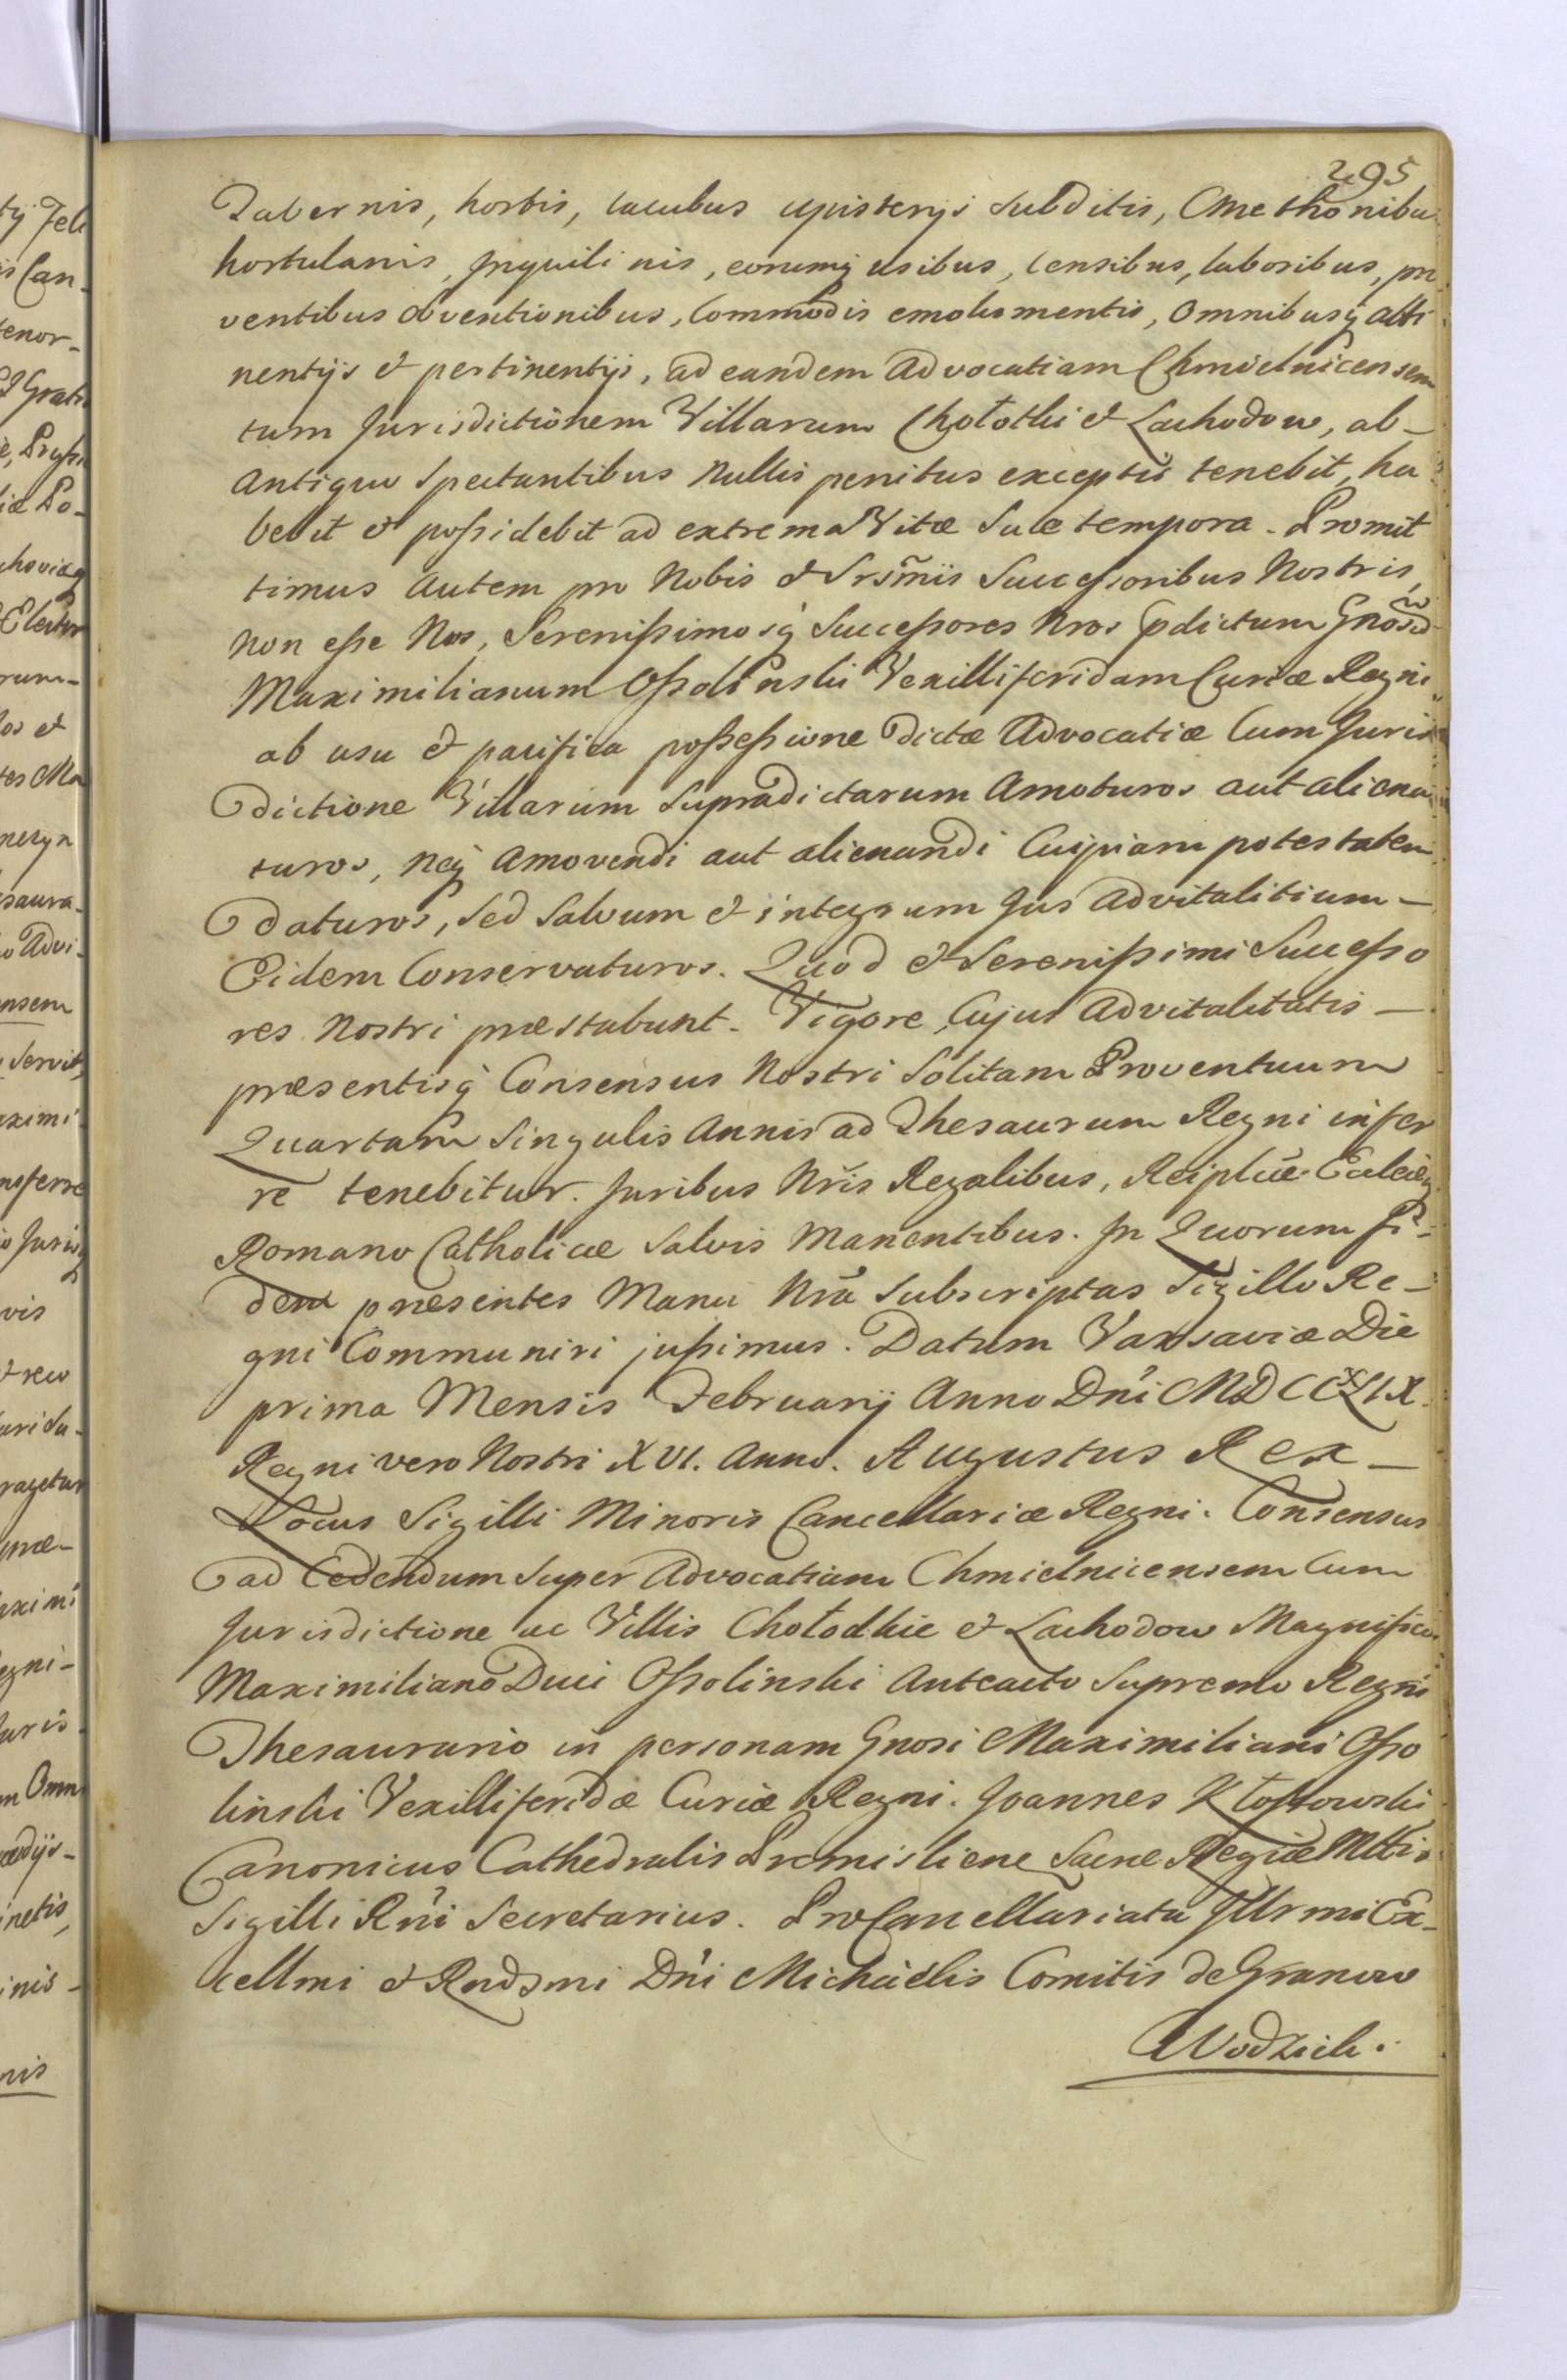 295
Tabernis, hortis, lacubus apisterijs subditis, Cmethonibu
hortulanis, Inquilinis, eorumq usibus, Censibus, laboribus, pro
ventibus obventionibus, Commodis emolumentis, Omnibusq atti
nentijs et pertinentijs, ad eandem Advocatiam Chmielnicensem
tum Jurisdictionem Villarum Chołotki et Lachodow, ab-
Antiquo Spectantibus Nullis penitus exceptis tenebit, ha
bebit et possidebit ad extrema Vitæ Suæ tempora. Promit
timus autem pro Nobis et Srsm̃iis Successoribus Nostris,
Non esse Nos, Serenissimosq Successores Nros pdictum Gnosũ
Maximilianum Ossolinski Vexilliferidam Curiæ Regni
ab usu et pacifica possessione Dictæ Advocatiæ Cum Juris
dictione Villarum Supradictarum Amoturos aut aliena
turos, Neq Amovendi aut alienandi Cuipiam potestatem
daturos, Sed Salvum et integrum Jus Advitalitium-
Eidem Conservaturos. Quod et Serenissimi Successo
res Nostri præstabunt. Vigore Cujus Advitalitatis-
præsentisq Consensus Nostri Solitam Proventuum
Quartam Singulis Annis ad Thesaurum Regni infer
re tenebitur. Juribus Nris Regalibus, Reiplcæ Eclciæq
Romano Catholicæ Salvis Manentibus. In Quorum Fi-
dem præsentes Manu Nra Subscriptas Sigillo Re-
gni Communiri jussimus. Datum Varsaviæ Die
prima Mensis Februarij Anno Dni MDCCXLIX.
Regni vero Nostri XVI. Anno. Augustus Rex-
Locus Sigilli Minoris Cancellariæ Regni. Consensus
ad Cedendum Super Advocatiam Chmielnicensem Cum
Jurisdictione ac Villis Chołodkie et Lachodow Magnifico
Maximiliano Duci Ossolinski Anteacto Supremo Regni
Thesaurario in personam Gnosi Maximiliani Osso
linski Vexilliferidæ Curiæ Regni. Joannes Kłossowski
Canonicus Cathedralis Premisliene Sacræ Regiæ Mttis
Sigilli Rni Secretarius. ProCancellariatu Jllrmi Ex-
cellmi et Rndsmi Dni Michaelis Comitis de Granow
Wodzick.